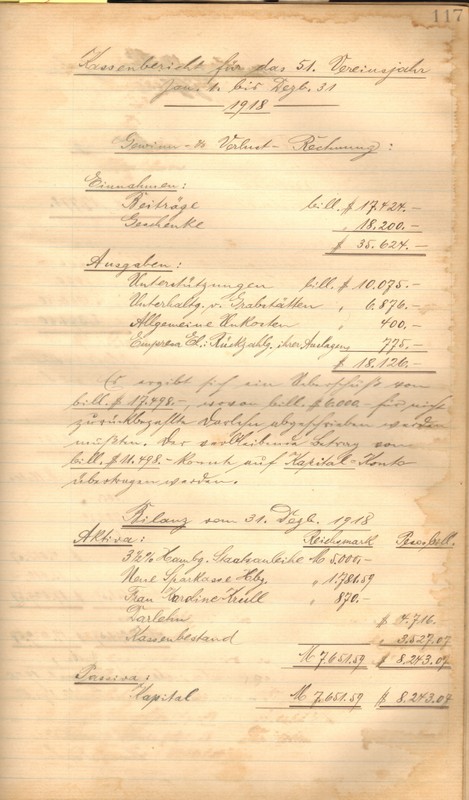 117
Kassenbericht für das 51. Vereinsjahr
Jan. 1. bis Dezb. 31
1918
Gewinn- & Verlust- Rechnung:
Einnahmen:
Beiträge bill. $ 17.424.-
Geschenke " 18.200.-
$ 35.624.-
Ausgaben:
Unterstützungen bill. $ 10.075.-
Unterhaltg. v. Grabstätten " 6.876.-
Allgemeine Unkosten " 400.-
Empresa El.: Rückzahlg. ihrer Auslagen 775.-
$ 18.126.-
Es ergibt sich ein Ueberschuss von
bill. $ 17.498.-, wovon bill. $ 6.000.- für nicht
zurückbezahlte Darlehn abgeschrieben werden
mußten. Der verbleibende Betrag von
bill. $ 11.498.- konnte auf Kapital-Konto
übertragen werden.
Bilanz vom 31. Dezb. 1918
Aktiva: Reichsmark Pesos bill.
3½% Hambg. Staatsanleihe M 5.000.-
Neue Sparkasse Hbg. " 1.781.59
Frau Krull " 870.-
Darlehn $ 4.716.
Kassenbestand " 3.527.07
M 7.651.59 $ 8.243.07
Passiva:
Kapital M 7.651.59 $ 8.243.07